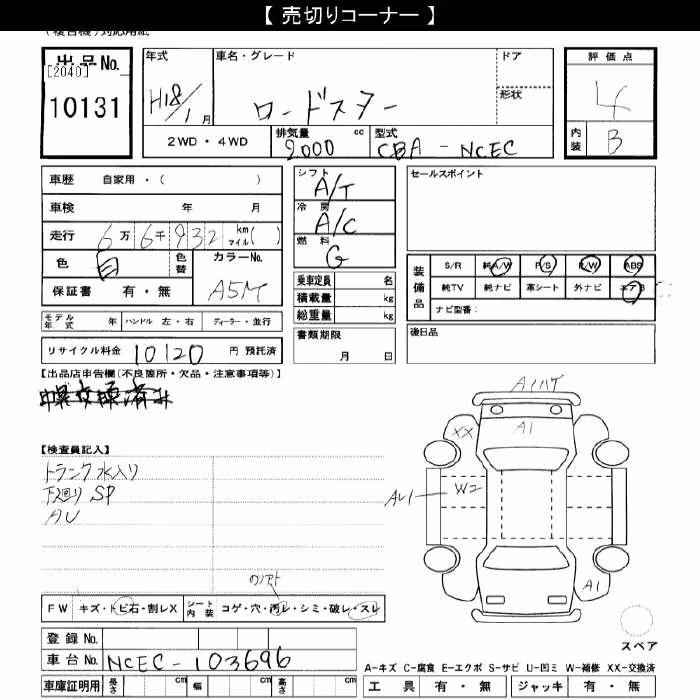 【 売切りコーナー 】
(複合機)対応用紙
出品No.
[2040]
10131
年式
H18/1月
車名・グレード
ロードスター
ドア
形状
2WD・4WD
排気量 cc
2000
型式
CBA - NCEC
評価点
4
内装
B
車歴 自家用・( )
車検 年 月
走行 6万6千932 km マイル( )
色 白 色替
カラーNo.
A5M
保証書 有・無
シフト
A/T
冷房
A/C
燃料
G
セールスポイント
乗車定員 名
積載量 kg
総重量 kg
装備品
S/R 純A/W P/S P/W ABS
純TV 純ナビ 革シート 外ナビ エアB
ナビ型番:
モデル年式 年 ハンドル 左・右 ディーラー・並行
リサイクル料金 10120 円 預託済
書類期限
月 日
後日品
【出品店申告欄(不良箇所・欠品・注意事項等)】
【検査員記入】
トランク水入り
下廻り SP
AU
A1ハゲ
XX
A1
AU1
W2
A1
スペア
FW キズ・トビ石・割レX
シート内装 コゲ・穴・汚レ・シミ・破レ・スレ
登録 No.
車台 No. NCEC-103696
車庫証明用 長さ cm 幅 cm 高さ cm
A-キズ C-腐食 E-エクボ S-サビ U-凹ミ W-補修 XX-交換済
工具 有・無 ジャッキ 有・無